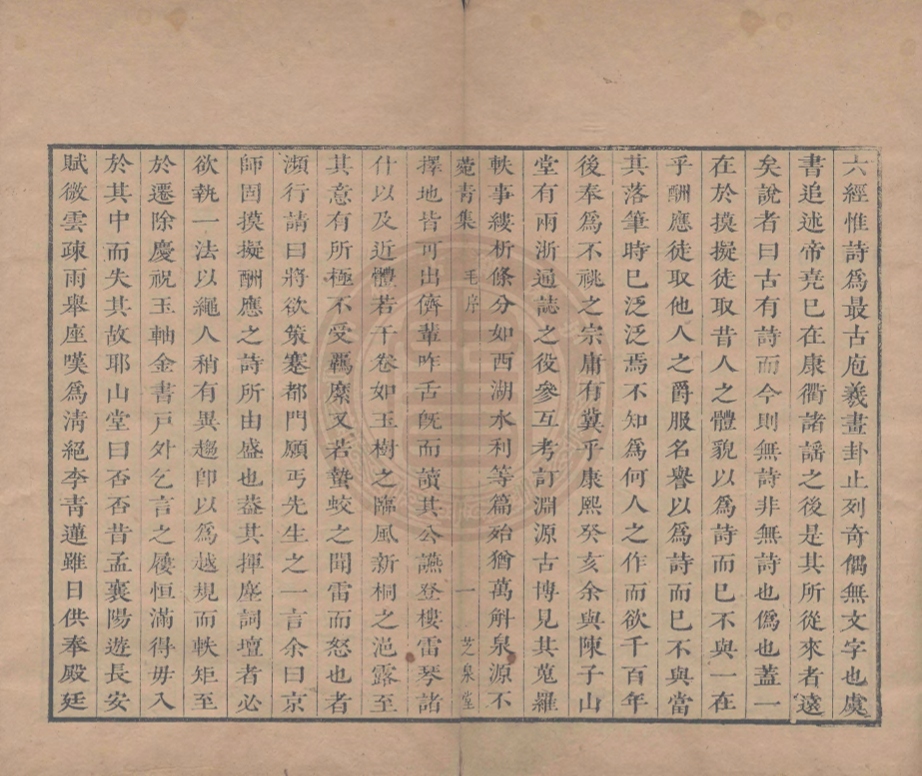 六經惟詩爲最古庖羲畫卦止列奇偶無文字也虞
書追述帝堯巳在康衢諸謡之後是其所從來者遠
矣說者曰古有詩而今則無詩非無詩也僞也蓋一
在於摸擬徒取昔人之體貌以爲詩而巳不與一在
乎酬應徒取他人之爵服名譽以爲詩而巳不與當
其落筆時巳泛泛焉不知爲何人之作而欲千百年
後奉爲不祧之宗庸有冀乎康熙癸亥余與陳子山
堂有兩浙通誌之役參互考訂淵源古博見其蒐羅
軼事縷析條分如西湖水利等篇殆猶萬斛泉源不
菀青集 毛序 一 芝泉堂
擇地皆可出儕輩咋舌旣而讀其公讌登樓雷琴諸
什以及近體若干卷如玉樹之臨風新桐之浥露至
其意有所極不受羈縻又若蟄蛟之聞雷而怒也者
瀕行請曰將欲策蹇都門願丐先生之一言余曰京
師固摸擬酬應之詩所由盛也葢其揮麈詞壇者必
欲執一法以繩人稍有異趨卽以爲越規而軼矩至
於遷除慶祝玉軸金書戸外乞言之屨恒滿得毋入
於其中而失其故耶山堂曰否否昔孟襄陽遊長安
賦微雲疎雨舉座嘆爲淸絕李青蓮雖日供奉殿廷